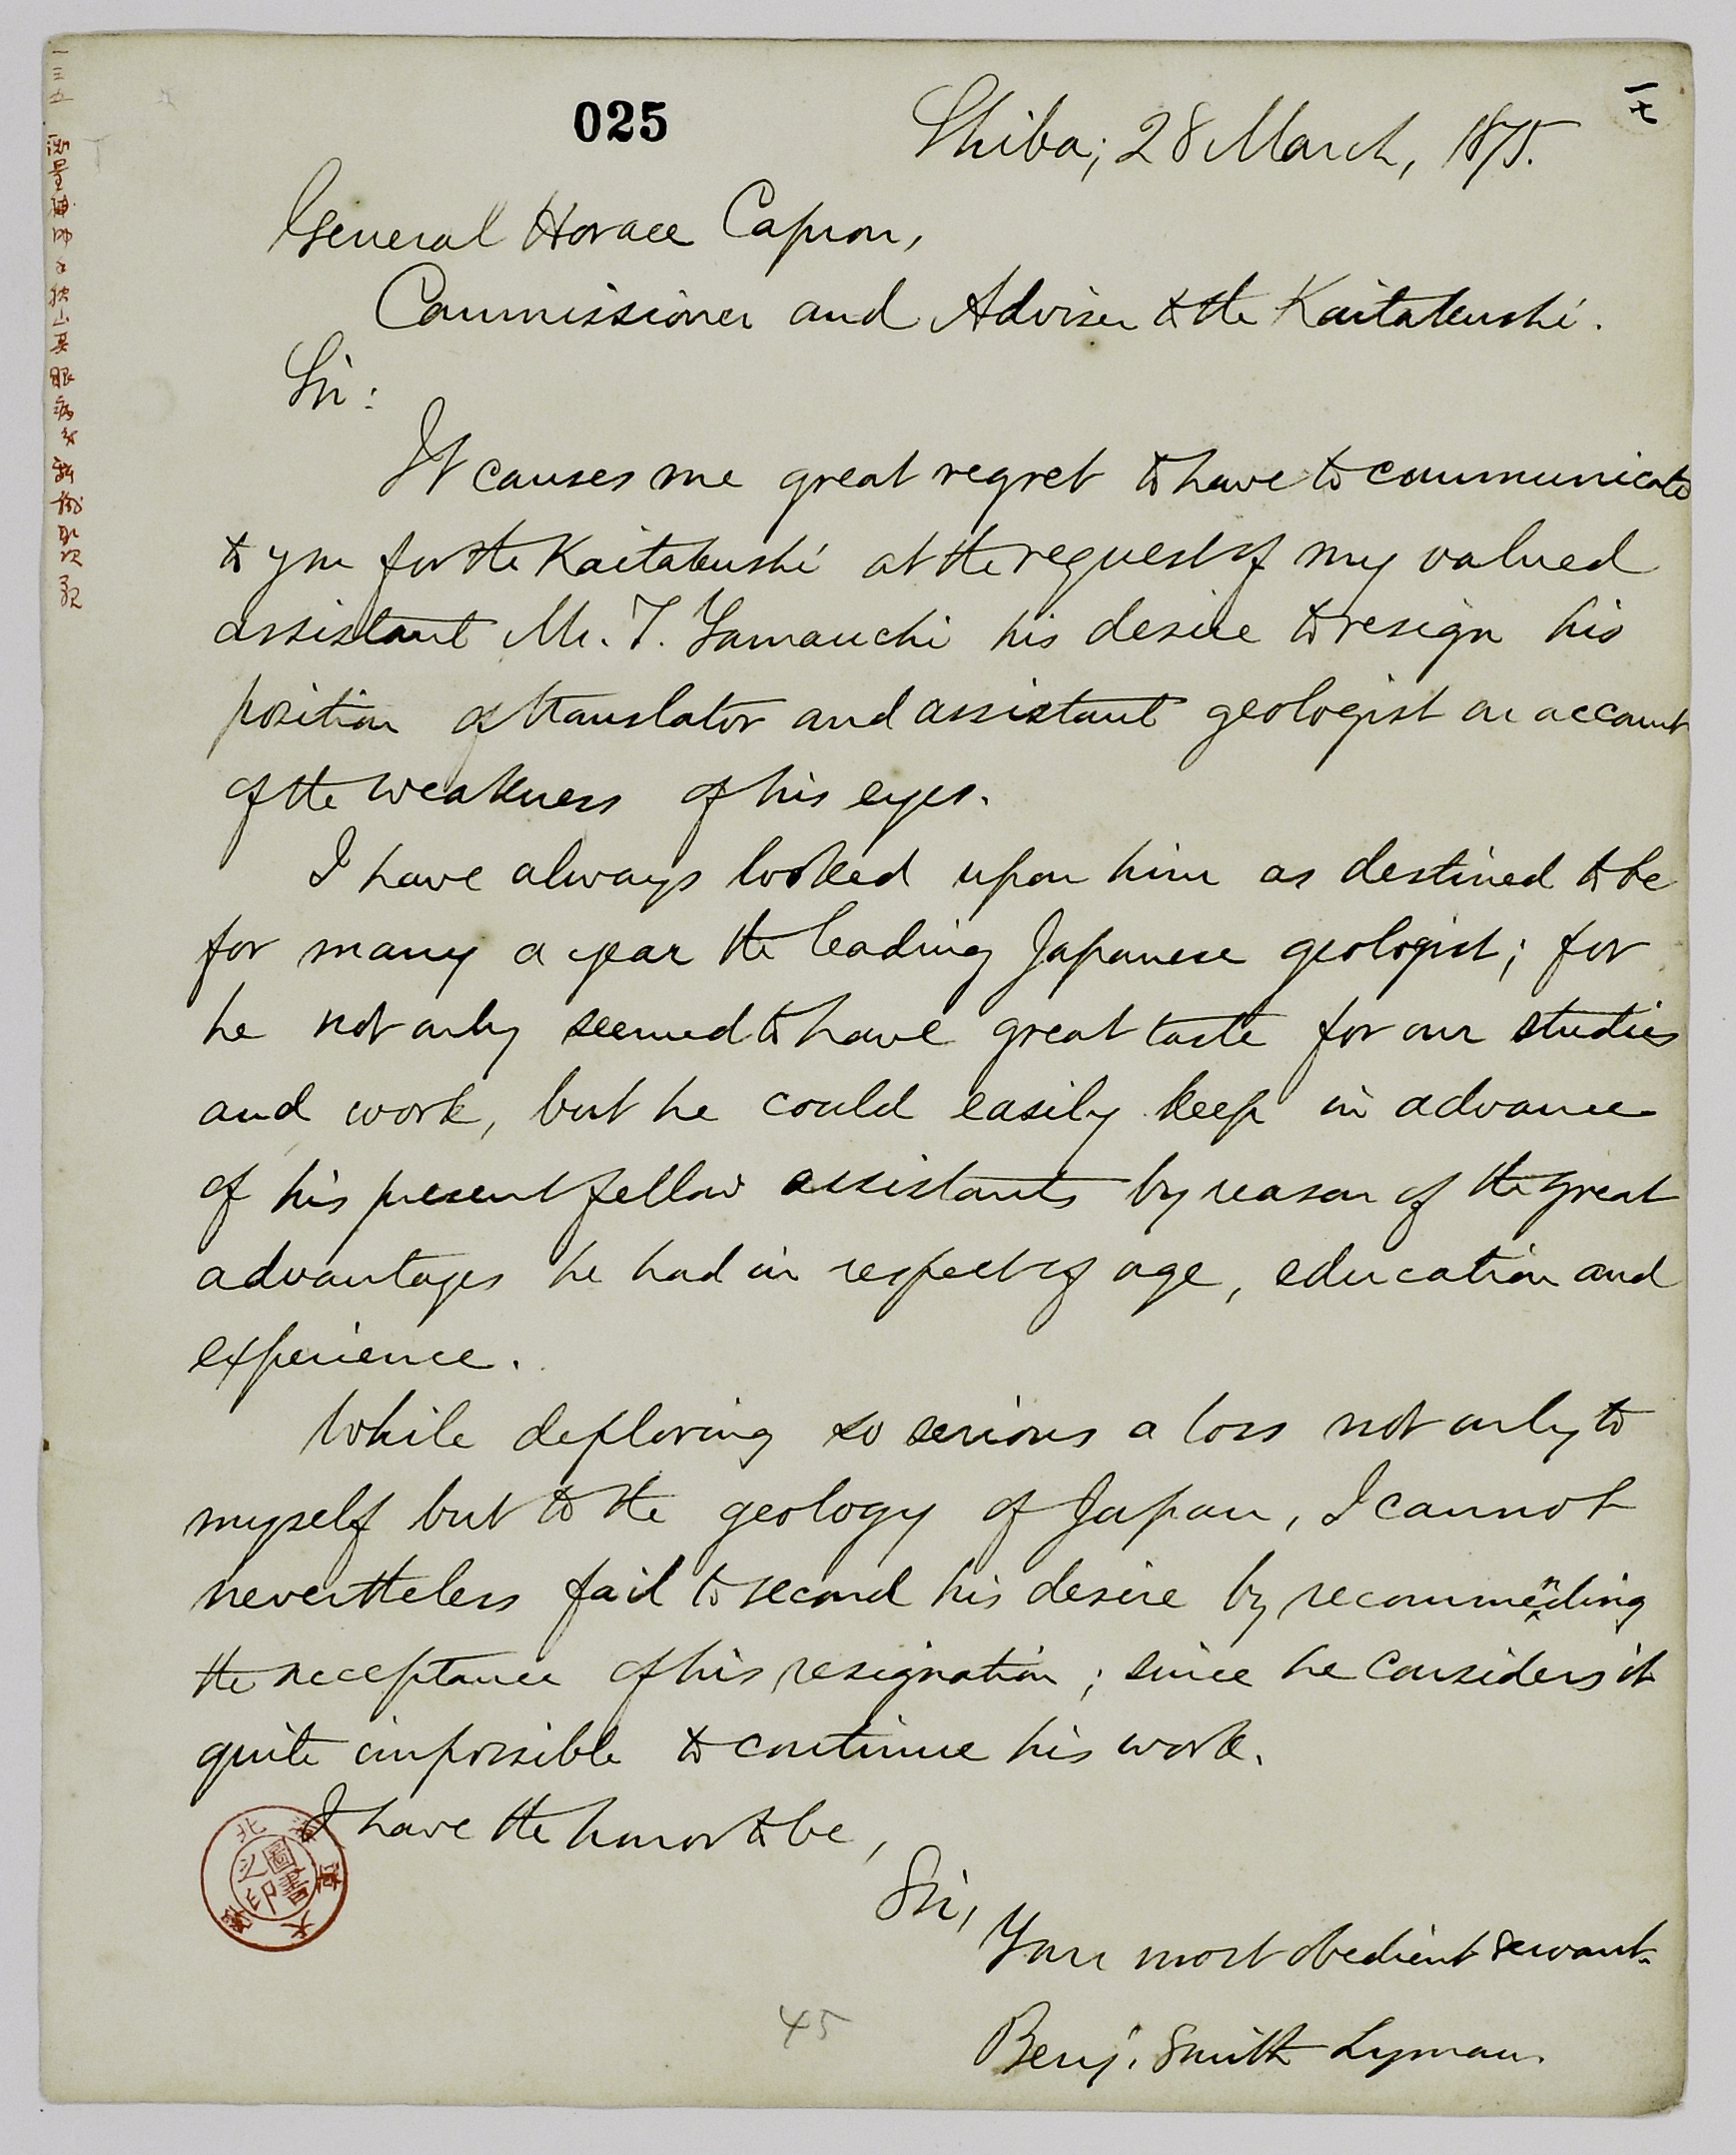 025
Shiba; 28 March, 1875.
General Horace Capron,
Commissioner and Adviser to the Kaitakushi.
Sir:
It causes me great regret to have to communicate
to you for the Kaitakushi at the request of my valued
assistant Mr. T. Yamauchi his desire to resign his
position of translator and assistant geologist on account
of the weakness of his eyes.
I have always looked upon him as destined to be
for many a year the leading Japanese geologist; for
he not only seemed to have great taste for our studies
and work, but he could easily keep in advance
of his present fellow assistants by reason of the great
advantages he had in respect of age, education and
experience.
While deploring so serious a loss not only to
myself but to the geology of Japan, I cannot
nevertheless fail to second his desire by recommending
the acceptance of his resignation; since he considers it
quite impossible to continue his work.
I have the honor to be,
Sir,
Your most obedient servant.
Benj. Smith Lyman.
45
北海道大學
圖書之印